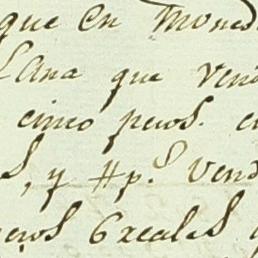 que en Moned
Lana que Ven
cinco pesos. c
s, y #p.s Vend
pesos 6 reales q